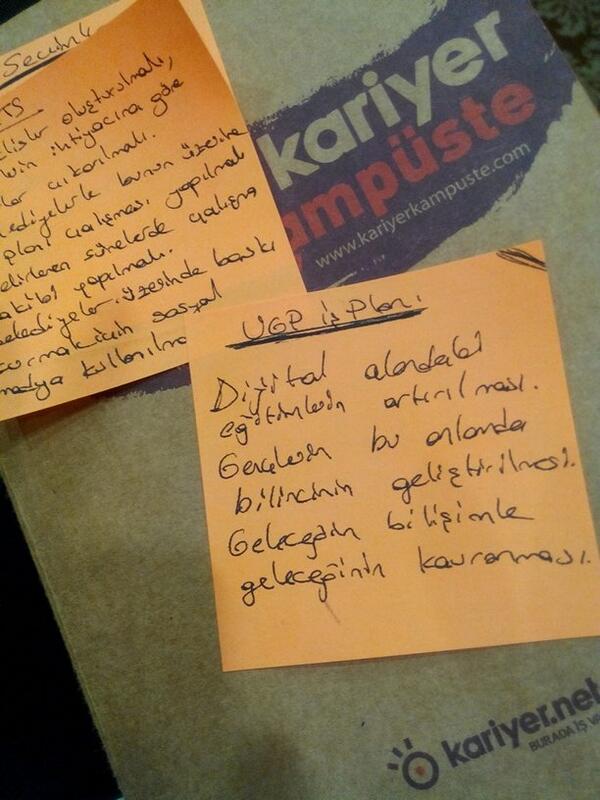 oluşturulmalı,
ihtiyacına göre
çıkarılmalı.
bunun üzerine
planı çalışması yapılmalı
sürelerde çalışma
yapılmalı.
belediyeler üzerinde baskı
için sosyal
kariyer
kampüste
www.kariyerkampuste.com
UGP iş Planı
Dijital alandaki
eğitimlerin artırılması.
Gençlerin bu anlamda
bilincinin geliştirilmesi.
Geleceğin bilişimle
geleceğinin kavranması.
kariyer.net
BURADA İŞ VA